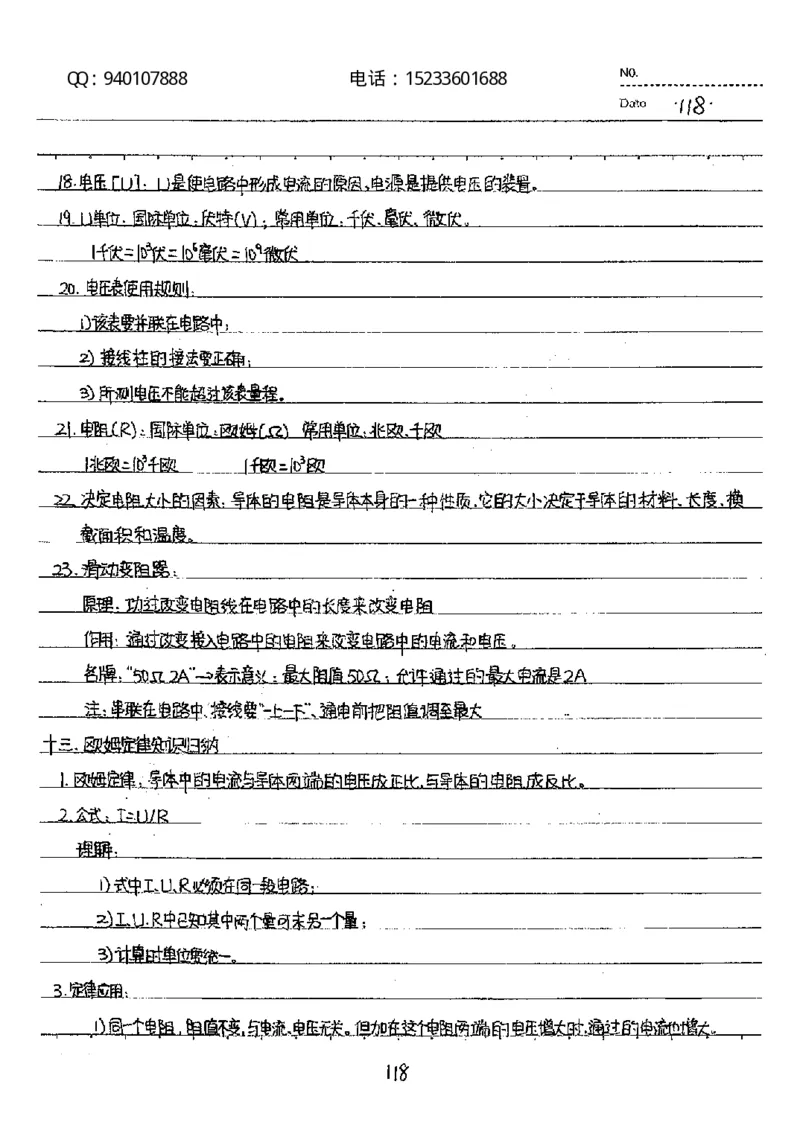 QQ：940107888 电话：15233601688 NO.
Date ·118·
18.电压[U]. U是使电路中形成电流的原因,电源是提供电压的装置。
19.U单位.国际单位:伏特(V); 常用单位:千伏、毫伏、微伏。
1千伏=10³伏=10⁶毫伏=10⁹微伏
20.电压表使用规则:
1)该表要并联在电路中;
2)接线柱的接法要正确;
3)所测电压不能超过该表量程。
21.电阻(R):国际单位:欧姆(Ω) 常用单位:兆欧、千欧
1兆欧=10³千欧 1千欧=10³欧
22.决定电阻大小的因素:导体的电阻是导体本身的一种性质,它的大小决定于导体的材料、长度、横
截面积和温度。
23.滑动变阻器:
原理.功过改变电阻线在电路中的长度来改变电阻
作用:通过改变接入电路中的电阻来改变电路中的电流和电压。
名牌:"50Ω 2A"→表示意义:最大阻值50Ω;允许通过的最大电流是2A
注:串联在电路中、接线要"一上一下"、通电前把阻值调至最大
十三.欧姆定律知识归纳
1.欧姆定律:导体中的电流与导体两端的电压成正比,与导体的电阻成反比。
2.公式:I=U/R
理解:
1)式中I、U、R必须在同一段电路;
2)I、U、R中已知其中两个量可求另一个量;
3)计算时单位要统一。
3.定律应用:
1)同一个电阻,阻值不变,与电流、电压无关。但加在这个电阻两端的电压增大时,通过的电流也增大。
118